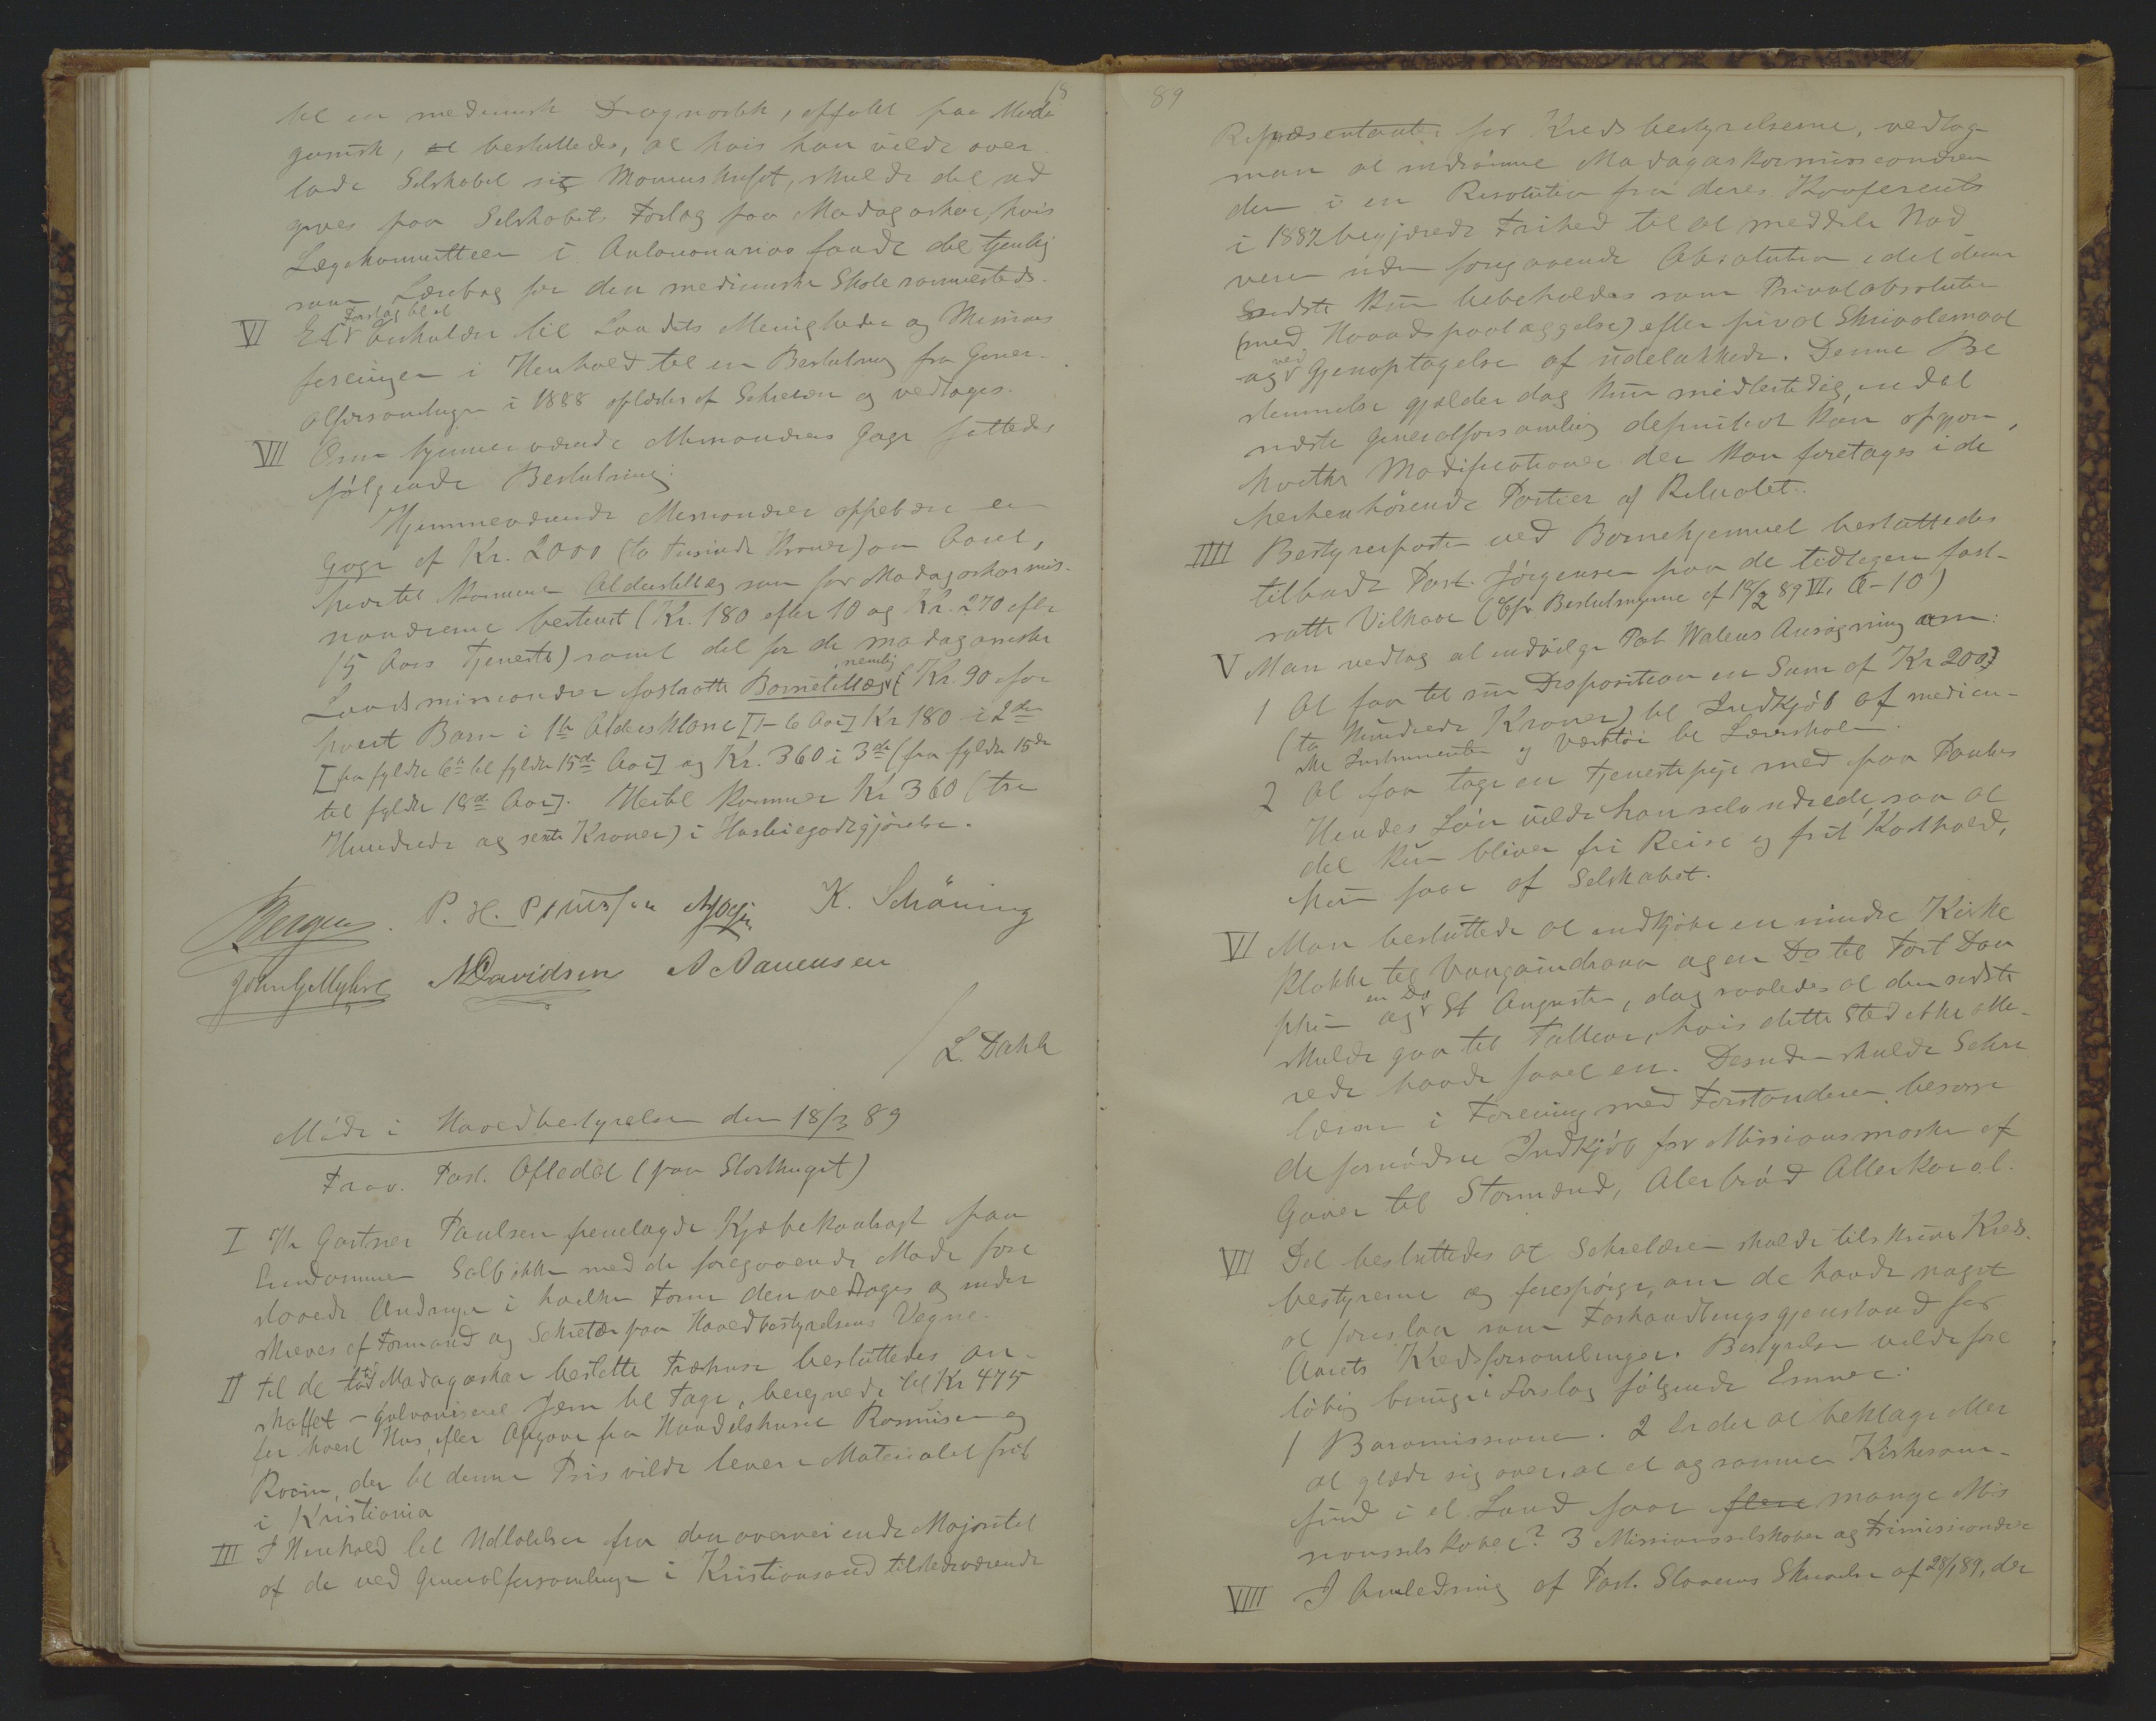 18
til en medicinsk Diagnostik, affattet paa Mada
gassisk, at besluttedes, at hvis han vilde over
lade Selskabet sit Manuskript, skulde det ud
gives paa Selskabets Forlag paa Madagaskar, hvis
Lægekomitteen i Antananarivo fandt det tjenlig
som Lærebog for den medicinske Skole sammesteds.
VI Et Forslag til et Cirkulære til Landets Menigheder og Missions
foreninger i Henhold til en Beslutning fra Gener-
alforsamlingen i 1888 oplæstes af Sekretær og vedtoges.
VII Om hjemmeværende Missionærers Gage fattedes
følgende Beslutning:
Hjemmeværende Missionærer oppebære en
Gage af Kr. 2000 (to Tusinde Kroner) om Aaret,
hvortil kommer Alderstillæg som for Madagaskarmis-
sionærerne bestemt (Kr. 180 efter 10 og Kr. 270 efter
15 Aars Tjeneste) samt det for de madagassiske
Landsmissionærer fastsatte Barnetillæg, nemlig [Kr. 90 for
hvert Barn i 1ste Aldersklasse [1-6 Aar] Kr 180 i 2den
[fra fyldte 6te til fyldte 15de Aar] og Kr. 360 i 3die (fra fyldte 15de
til fyldte 18de Aar]. Hertil kommer Kr 360 (tre
Hundrede og sexti Kroner) i Husleiegodtgjørelse.
P. H. K. Schöning
John G. Myhre N Davidsen
L. Dahle
Møde i Hovedbestyrelsen den 18/3 89
Frav. Past. Oftedal (paa Storthinget)
I Hr Gartner Paulsen fremlagde Kjøbekontrakt paa
Eiendommen Solbakken med de foregaaende Møde fore
slaaede Ændringer i hvilken Form den vedtoges og under
skreves af Formand og Sekretær paa Hovedbestyrelsens Vegne.
II Til de til Madagaskar bestilte Træhuse besluttedes an-
skaffet galvaniseret Jern til Tage, beregnede til Kr 475
for hvert Hus, efter Opgave fra Handelshuset Rasmussen og
Racin, der til denne Pris vilde levere Materialet frit
i Kristiania
III I Henhold til Udtalelser fra den overveiende Majoritet
af de ved Generalforsamlingen i Kristiansand tilstedeværende
89
Repræsentanter for Kredsbestyrelserne, vedtog
man at indrømme Madagaskarmissionæren
den i en Resolution fra deres Konferents
i 1887 begjærede Frihed til at meddele Nad
veren uden foregaaende Absolution idet denne
sidste kun bibeholdes som Privatabsolution
(med Haandspaalæggelse) efter privat Skriftemaal
og ved Gjenoptagelse af udelukkede. Denne Be
stemmelse gjælder dog kun midlertidig, indtil
næste Generalforsamling definitivt kan afgjøre,
hvilke Modificationer der kan foretages i de
herhenhørende Partier af Ritualet.
IIII Bestyrerposten ved Børnehjemmet besluttedes
tilbudt Past. Jørgensen paa de tidligere fast-
satte Vilkaar (Cfr. Beslutningerne af 18/2 89 VI, a-10)
V Man vedtog at indvilge Past Walens Ansøgning om:
1 At faa til sin Disposition en Sum af Kr 200
(to Hundrede Kroner) til Indkjøb af medicin-
ske Instrumenter og Værktøi til Lærerskolen.
2 At faa tage en Tjenestepige med paa
Hendes Løn vilde han selv udrede, saa at
det kun bliver fri Reise og frit Kosthold,
hun faar af Selskabet.
VI Man besluttede at indkjøbe en mindre Kirke
klokke til Vangaindrano og en Do til Fort Dau
phin og en Do St Augustin, dog saaledes at den sidste
skulde gaa til Tullear, hvis dette Sted ikke alle-
rede havde faaet en. Desuden skulde Sekre
tæren i Forening med Forstanderen besørge
de fornødne Indkjøb for Missionsmarken af
Gaver til Stormænd, Alterbrød Alterkar o.l.
VII Det besluttedes at Sekretæren skulde tilskrive Kreds-
bestyrerne og forespørge, om de havde noget
at foreslaa som Forhandlingsgjenstand for
Aarets Kredsforsamlinger. Bestyrelsen vilde fore
løbig bringe i Forslag følgende Emner:
1 Baramissionen. 2 Er det at beklage eller
at glæde sig over, at et og samme Kirkesam-
fund i et Land faar flere mange Mis
sionsselskaber? 3 Missionsselskaber og Frimissionærer
VIII I Anledning af Past. Slovens Skrivelse af 28/1 89, der